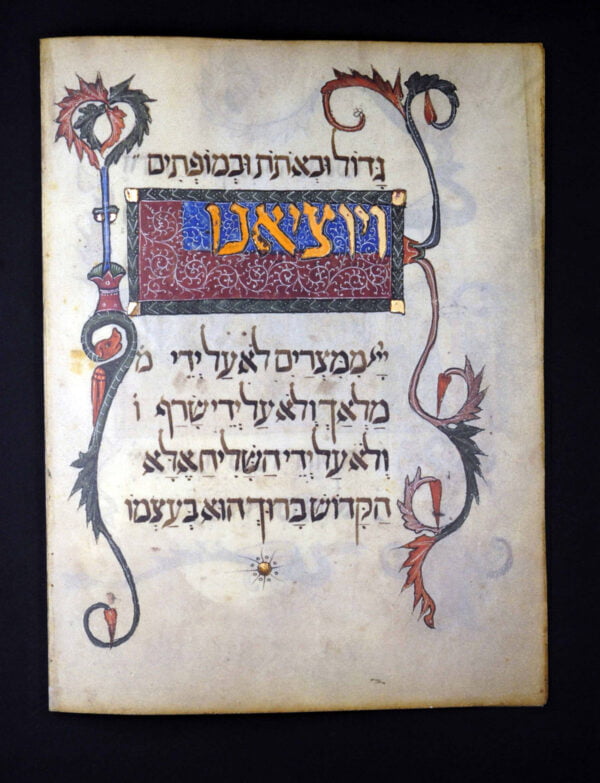 גָדוֹל וּבְאֹתֹת וּבְמוֹפְתִים
ויוציאנו
יְיָ מִמִצְרַיִם לֹא עַל יְדֵי מ
מַלְאַךְ וְלֹא עַל יְדֵי שָׂרָף ו
וְלֹא עַל יְדֵי הַשָׁלִיחַ אֶלָא
הַקָדוֹשׁ בָרוּךְ הוּא בְעַצְמוֹ